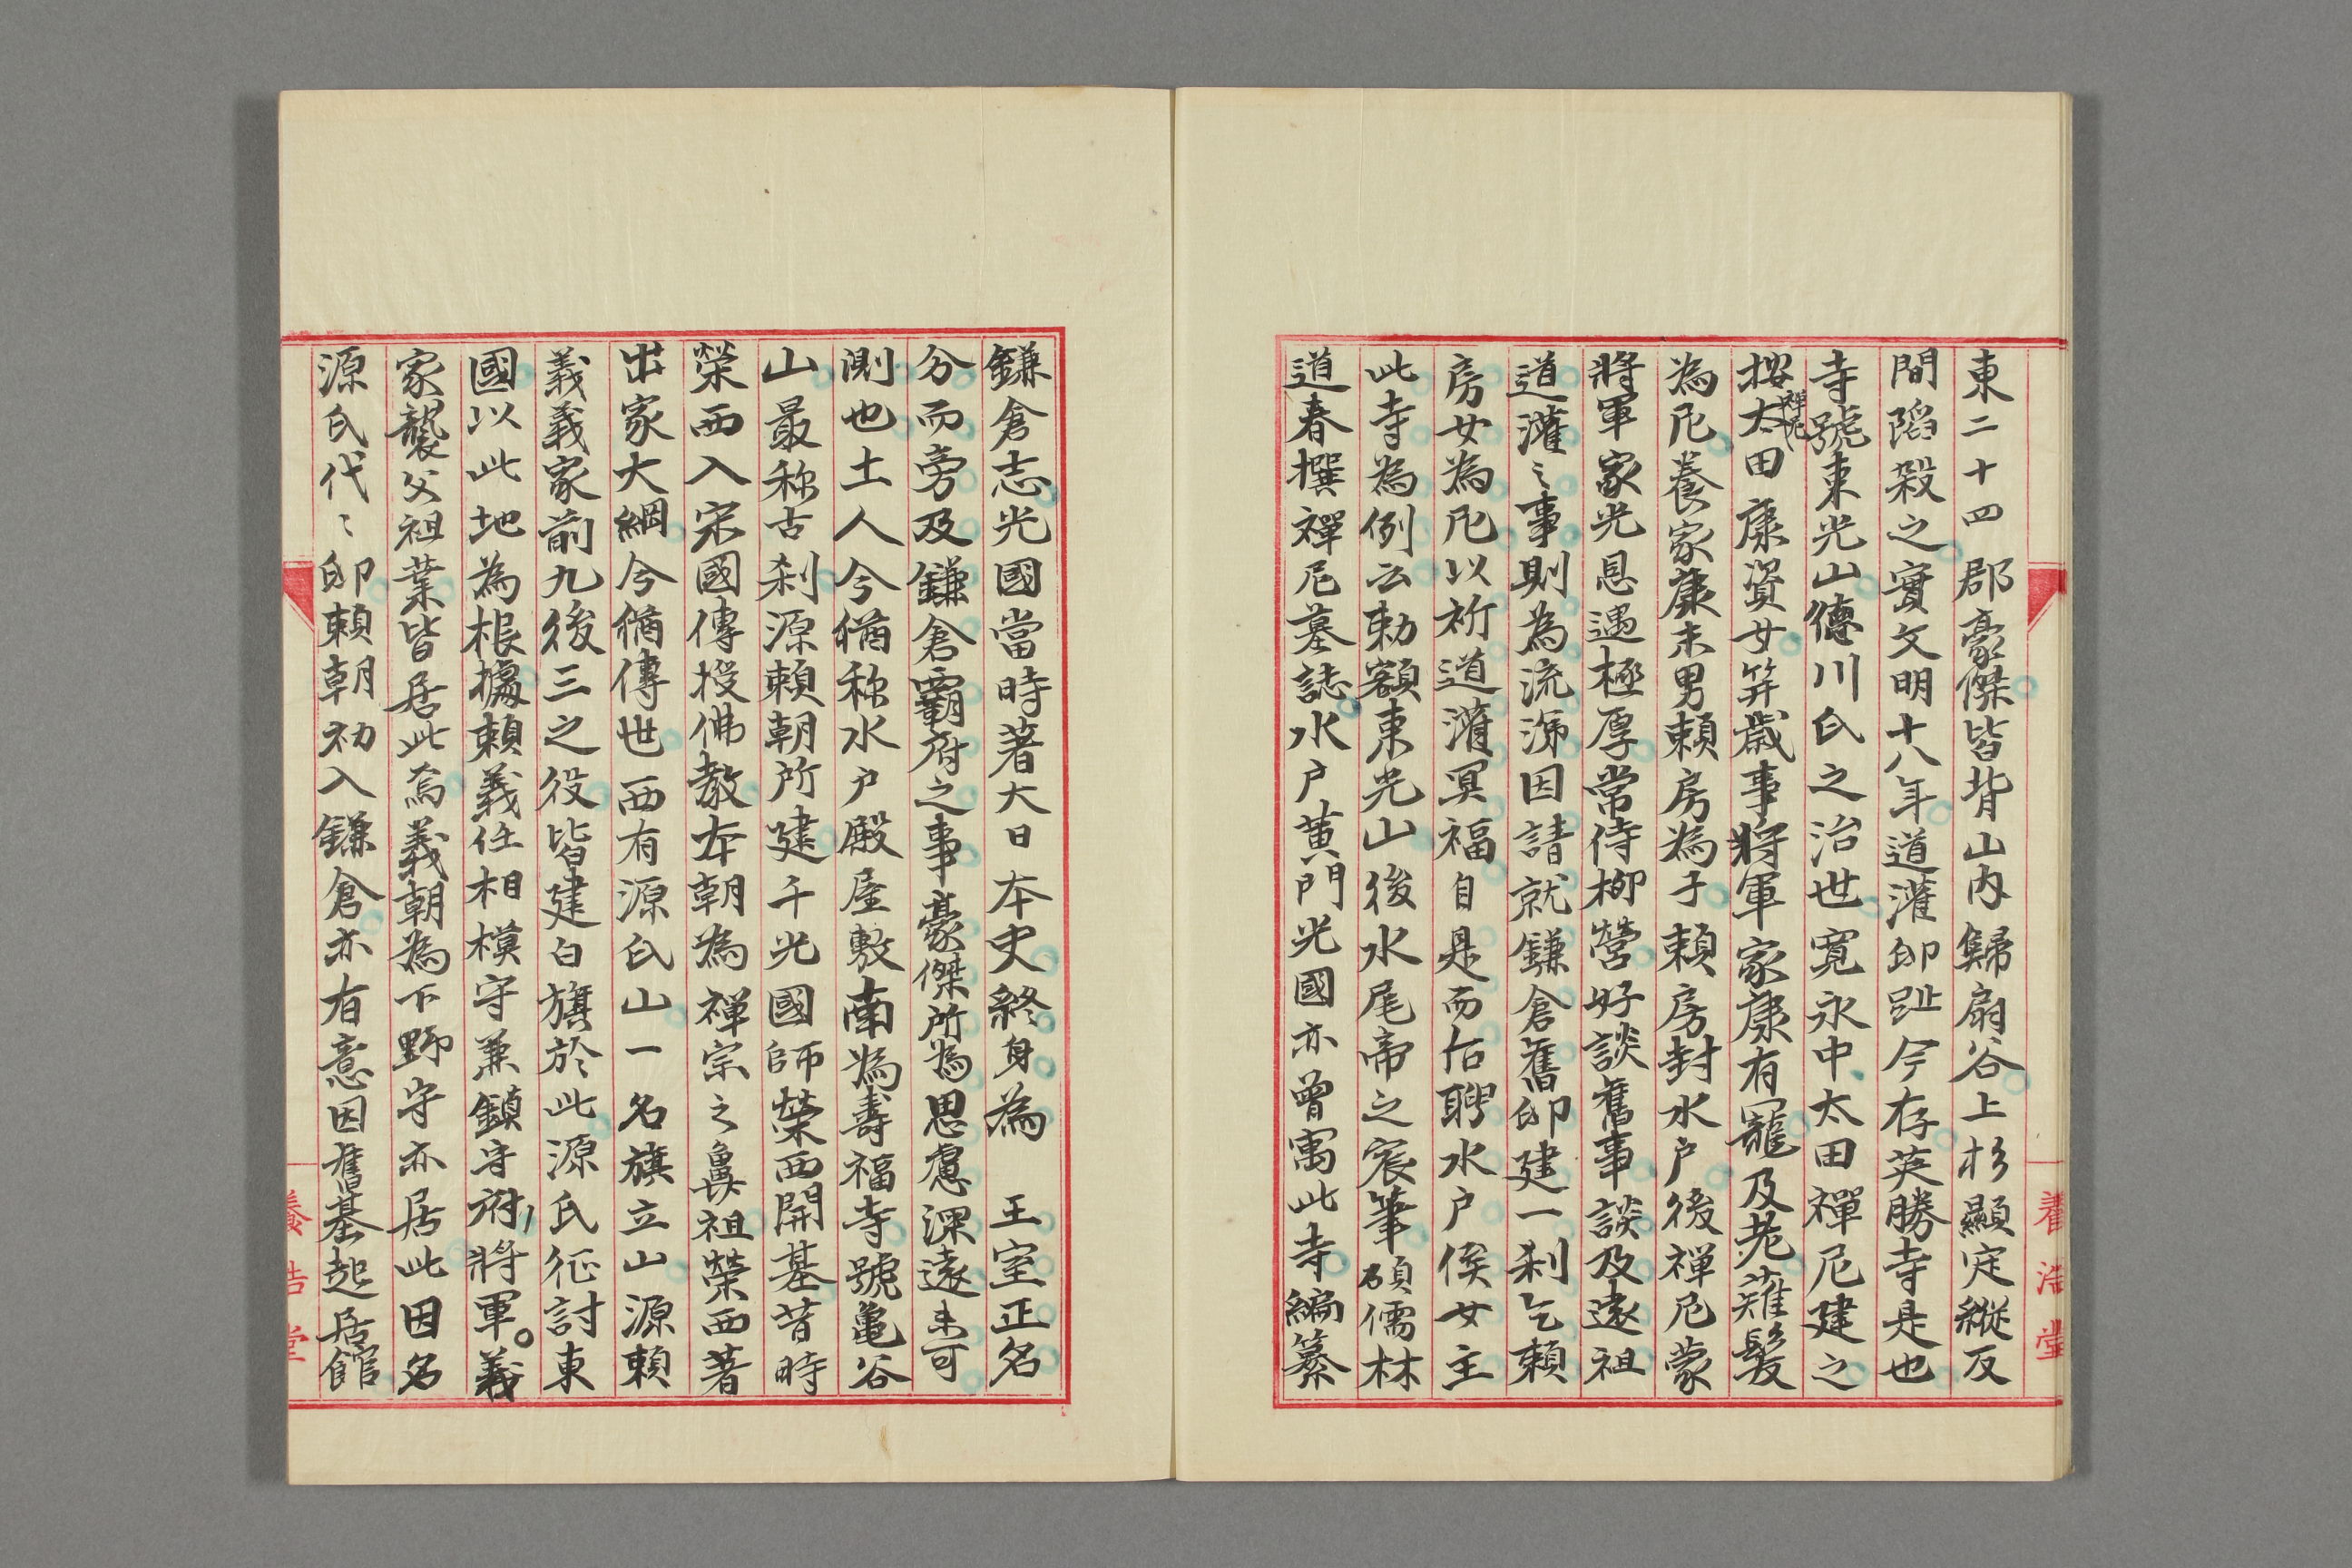 東二十四郡豪傑皆背山内歸扇谷上杉顯定縱反
間陷殺之實文明十八年道灌邸趾今存英勝寺是也
寺號東光山德川氏之治世寛永中太田禪尼建之
按太田康資女笄歳事將軍家康有寵及老薙髮
禪尼
為尼養家康末男頼房為子頼房封水戸後禪尼蒙
將軍家光恩遇極厚常侍柳營好談舊事談及遠祖
道灌〻事則為流涕因請就鎌倉舊邸建一刹乞頼
房女為尼以祈道灌冥福自是而后聘水戸侯女主
此寺為例云勅額東光山後水尾帝之宸筆碩儒林
道春撰禪尼墓誌水戸黄門光國亦曾寓此寺編纂
養浩堂
鎌倉志光國當時著大日本史終身為　王室正名
分而旁及鎌倉覇府之事豪傑所為思慮深遠未可
測也土人今猶称水戸殿屋敷南為壽福寺號亀谷
山最称古刹源頼朝所建千光國師榮西開基昔時
榮西入宋國傳授佛教本朝為禅宗之鼻祖榮西著
出家大綱今猶傳世西有源氏山一名旗立山源頼
義義家前九後三之役皆建白旗於此源氏征討東
國以此地為根據頼義任相模守兼鎮守府將軍。義
家襲父祖業皆居此焉義朝為下野守亦居此因名
源氏代〻邸頼朝初入鎌倉亦有意因舊基起居館
養浩堂